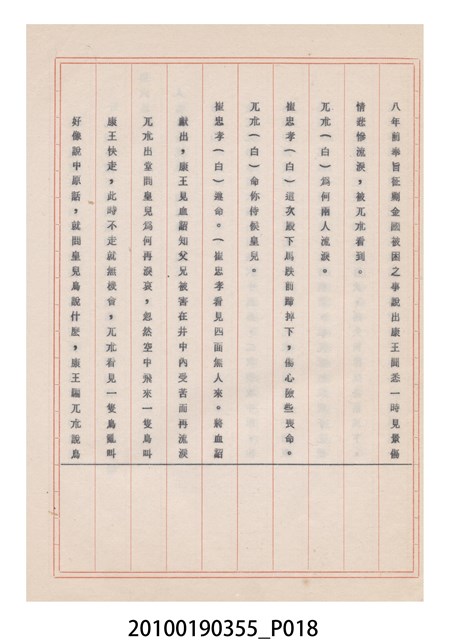 八年前奉旨征剿金國被困之事說出康王聞悉一時見景傷
情悲慘流淚，被兀朮看到。
兀朮（白）為何兩人流淚。
崔忠孝（白）這次殿下馬跌前蹄掉下，傷心險些喪命。
兀朮（白）命你侍候皇兒。
崔忠孝（白）遵命。（崔忠孝看見四面無人來。將血詔
獻出，康王見血詔知父兄被害在井中內受苦而再流淚
兀朮出堂問皇兒為何再淚哀，忽然空中飛來一隻鳥叫
康王快走，此時不走就無機會，兀朮看見一隻鳥亂叫
好像說中原話，就問皇兒鳥說什麼，康王騙兀朮說鳥
20100190355_P018